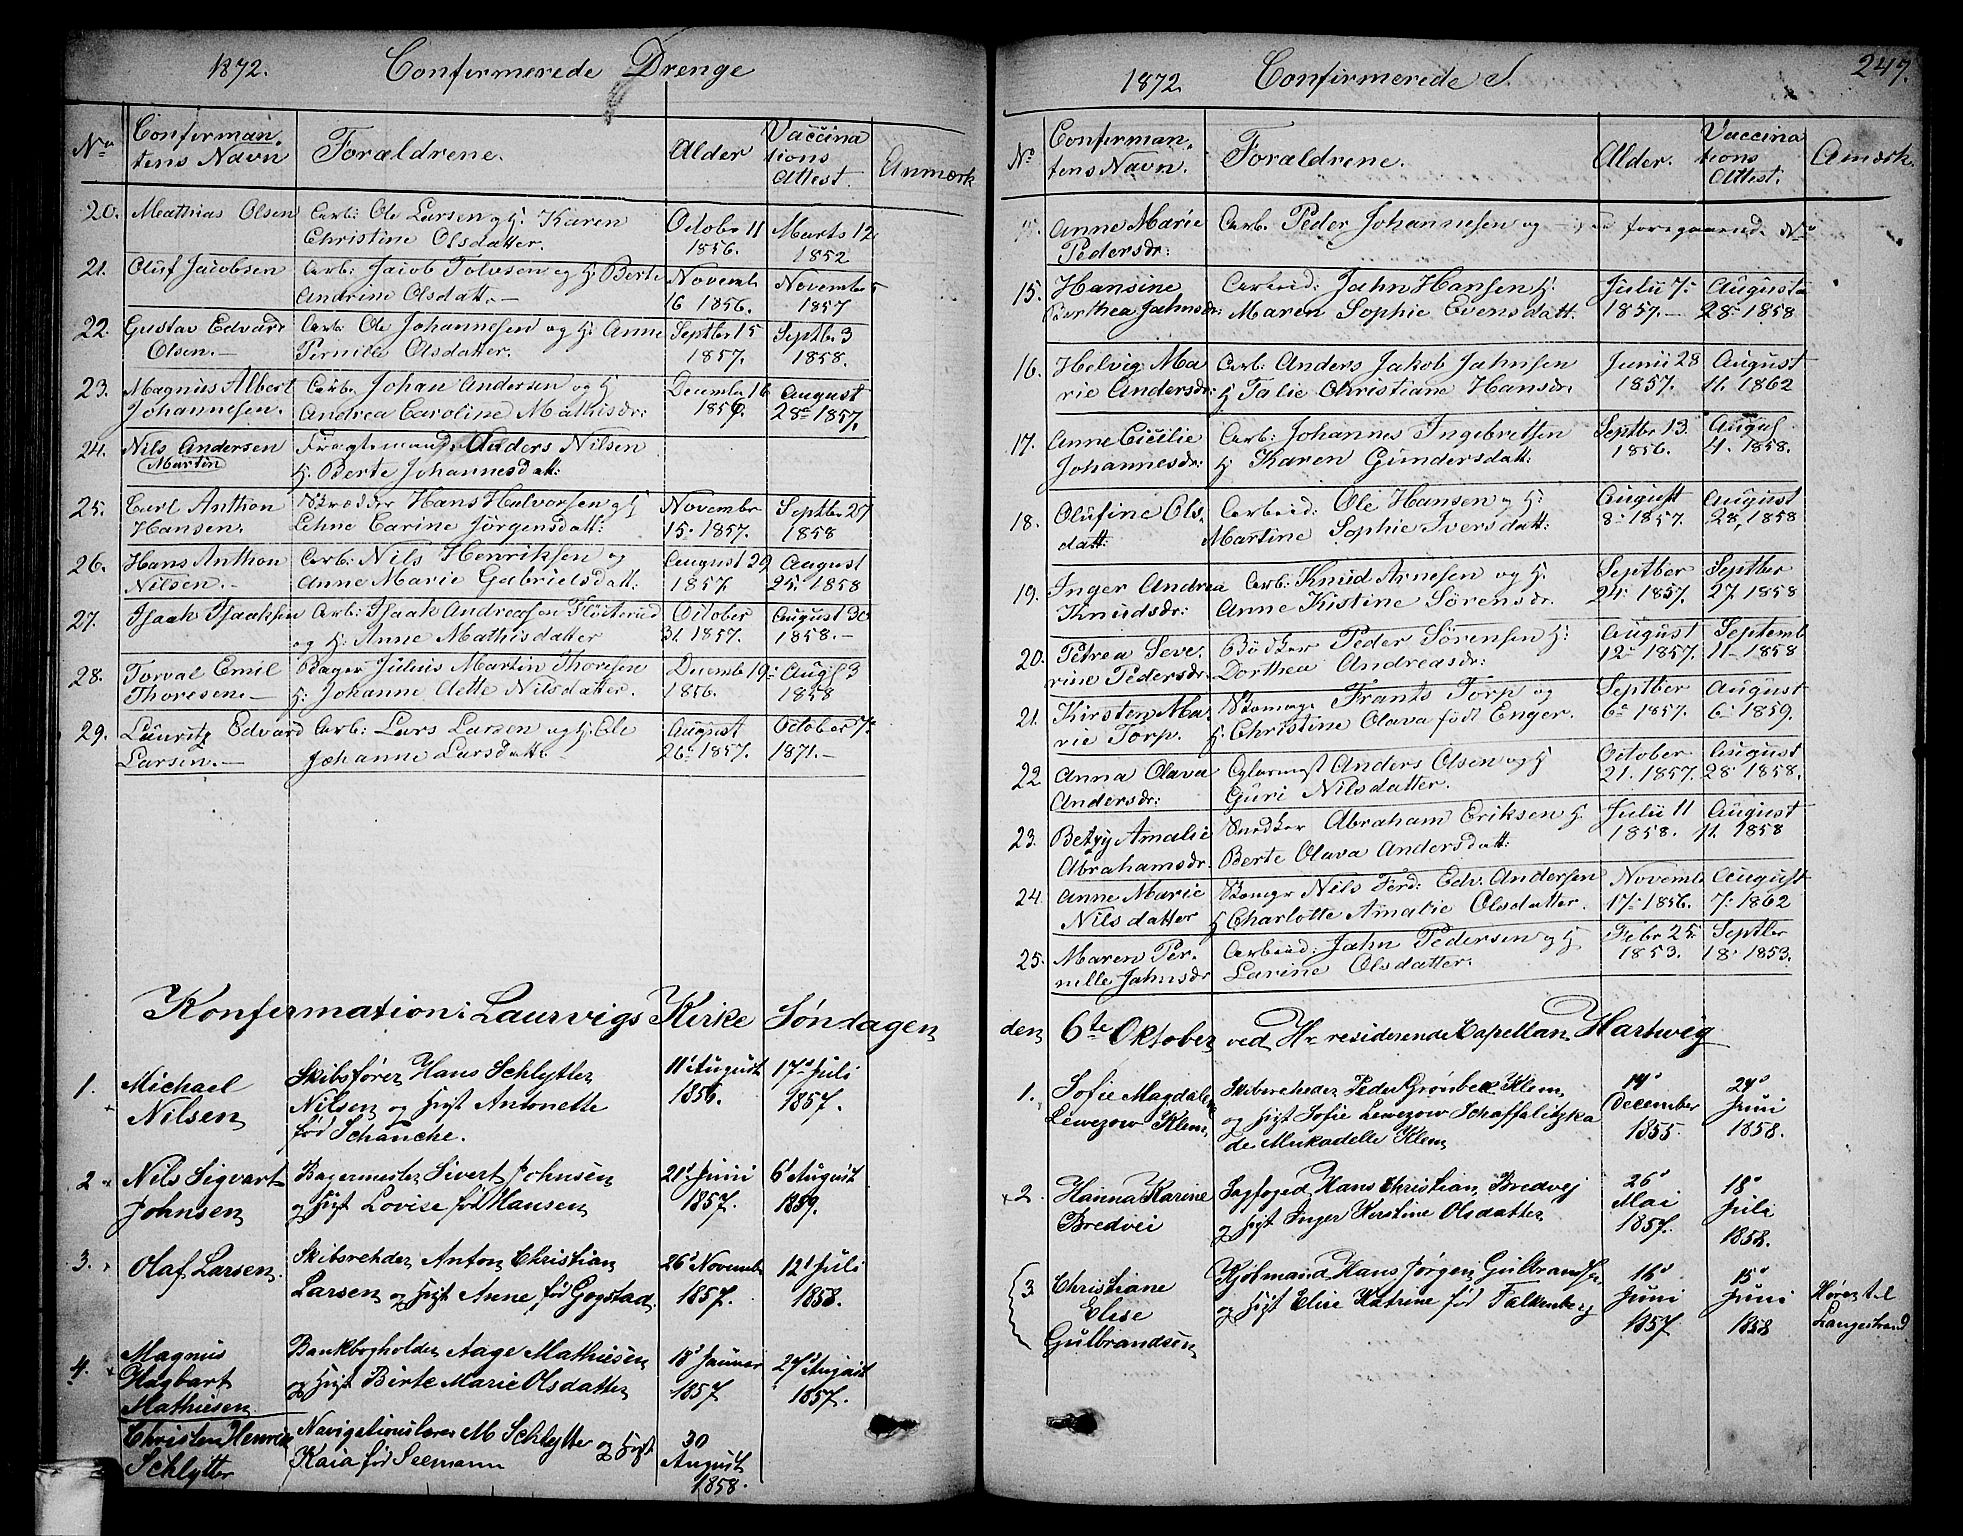 1872. Confirmerede Drenge
No Conferman- Forældrene. Alder Vaccina Anmærk
tens Navn tions
Attest.
20. Mathias Olsen Arb: Ole Larsen og H. Karen October 11 Marts 12
Christine Olsdatter. 1856. 1852
21. Oluf Jacobsen Arb: Jacob Tolvsen og H. Berte Novemb November
Andrine Olsdatt. 16 1856. 1857
22. Gustav Edvard Arb: Ole Johannesen og H. Anne Septbr 15 Septbr 3
Olsen.— Pernille Olsdatter. 1857. 1858.
23. Magnus Albert Arb. Johan Andersen og H Decembr 16 August
Johannesen. Andrea Caroline Mathisdr: 1856. 28 1857.
24. Nils Andersen Fragtemand Anders Nilsen
(Martin) H. Berte Johannesdatt:
25. Carl Anthon Skrædder Hans Halvorsen og H Novembr Septbr 27
Hansen. Lehne Carine Jörgensdatt: 15. 1857. 1858
26. Hans Anthon Arb: Nils Henriksen og August 29 August
Nilsen.— Anne Marie Gabrielsdatt: 1857. 25. 1858
27. Isaak Isaaksen Arb: Isaak Andreassen Flöiterud October August 30
og H: Anne Mathisdatter 31. 1857. 1858.—
28. Torval Emil Bager Julius Martin Thoresen Decemb 19: Aug 3
Thoresen.— H: Johanne Aette Nilsdatter. 1856. 1858
29. Lauritz Edvard Arb: Lars Larsen og H: Ele August October 7
Larsen.— Johanne Larsdatt: 26. 1857. 1871.—
Konfermation i Laurvigs Kirke Søndagen
1. Michael Skibsfører Hans Schlytter 11' August 17' Juli
Nilsen Nilsen og Hust Antonette 1856. 1857.
fød Schanche.
2 Nils Sigvart Bagermester Sivert Johnsen 21' Juni 6' August
Johnsen og Hust Lovise fød Hansen 1857. 1859.
3. Olaf Larsen Skibsrehder Anton Christian 26' Novembr 12' Juli
Larsen og Hust Anne fød Gogstad. 1857. 1858.
4. Magnus Bankbogholder Aage Mathiesen 18' Januar 27' August
Hagbart og Hust Birte Marie Olsdatter 1857. 1857.
Mathiesen
Christen Henrik Navigationslærer M Schlytter og Hust 30
Schlytter Kaia fød Seemann August
1858.
1872. Confirmerede 247.
No Conferman- Forældrene. Alder. Vaccina Amærk.
tens Navn. tions
Attest.
Anne Marie Arb. Peder Johannesen og foregaaende No
Pedersdr:
15. Hansine Arbeid: Jahn Hansen H: Julii 7: August
Berthea Jahnsdr: Maren Sophie Evensdatt. 1857.— 28 1858
16. Helvig Ma Arb Anders Jakob Jahnsen Junii 28 August
rie Andersdr: H Talie Christiane Hansdr. 1857. 11. 1862
17. Anne Cicilie Arb: Johannes Ingebretsen Septbr 13. August
Johannesdr: H Karen Gundersdatt: 1856. 4. 1858.
18. Olufine Ols. Arbeid: Ole Hansen og H: August August
datt: Martine Sophie Iversdatt: 8 1857. 28. 1858
19. Inger Andrea Arb: Knud Arnesen og H. Septber Septber
Knudsdr: Anne Kistine Sörensdr. 24. 1857. 27. 1858
20. Petrea Seve. Bödker Peder Sörensen H: August Septemb
rine Pedersdr: Dorthea Andreasdr: 12 1857. 11 1858
21. Kirsten Ma. Skomag. Frants Torp og Septber August
rie Torp. H Christine Olava født Enger. 6 1857. 6 1859.
22 Anna Olava Anders Olsen og H October August
Andersdr: Guri Nilsdatter. 21. 1857. 28 1858.
23. Betzy Amalie Snedker Abraham Eriksen H. Julii 11 August
Abrahamsdr. Berte Olava Andersdatt: 1858. 11. 1858
24. Anne Marie Skomgr Nils Ferd: Edv: Andersen Novemb August
Nilsdatter H Charlotte Amalie Olsdatter. 17. 1856. 7. 1862
25. Maren Per- Arbeid: Jahn Pedersen og H. Febr 25: Septber
nille Jahnsdr Larine Olsdatter. 1853. 18. 1853.
den 6te Oktober ved Hr residerende Capellan Hartwig
1. Sofie Magdale Skibsreheder Peder Grønbeck Klem 14' 24'
Lewezow Klem og Hust Sofie Lewezow Schaffalitzka December Juni
de Mukadelle Klem 1855. 1858.
2. Hanna Karine Sagfoged Hans Christian Bredvej 26' 18'
Bredvei og Hust Inger Kirstine Olsdatter Mai Juli
1857. 1858.
3 Christiane Kjøbmand Hans Jørgen Gulbrandsen 16' 15' Hører til
Elise og Hust Elise Katrine fød Falkenberg Juni Juni Langestrand
Gulbrandsen 1857 1858